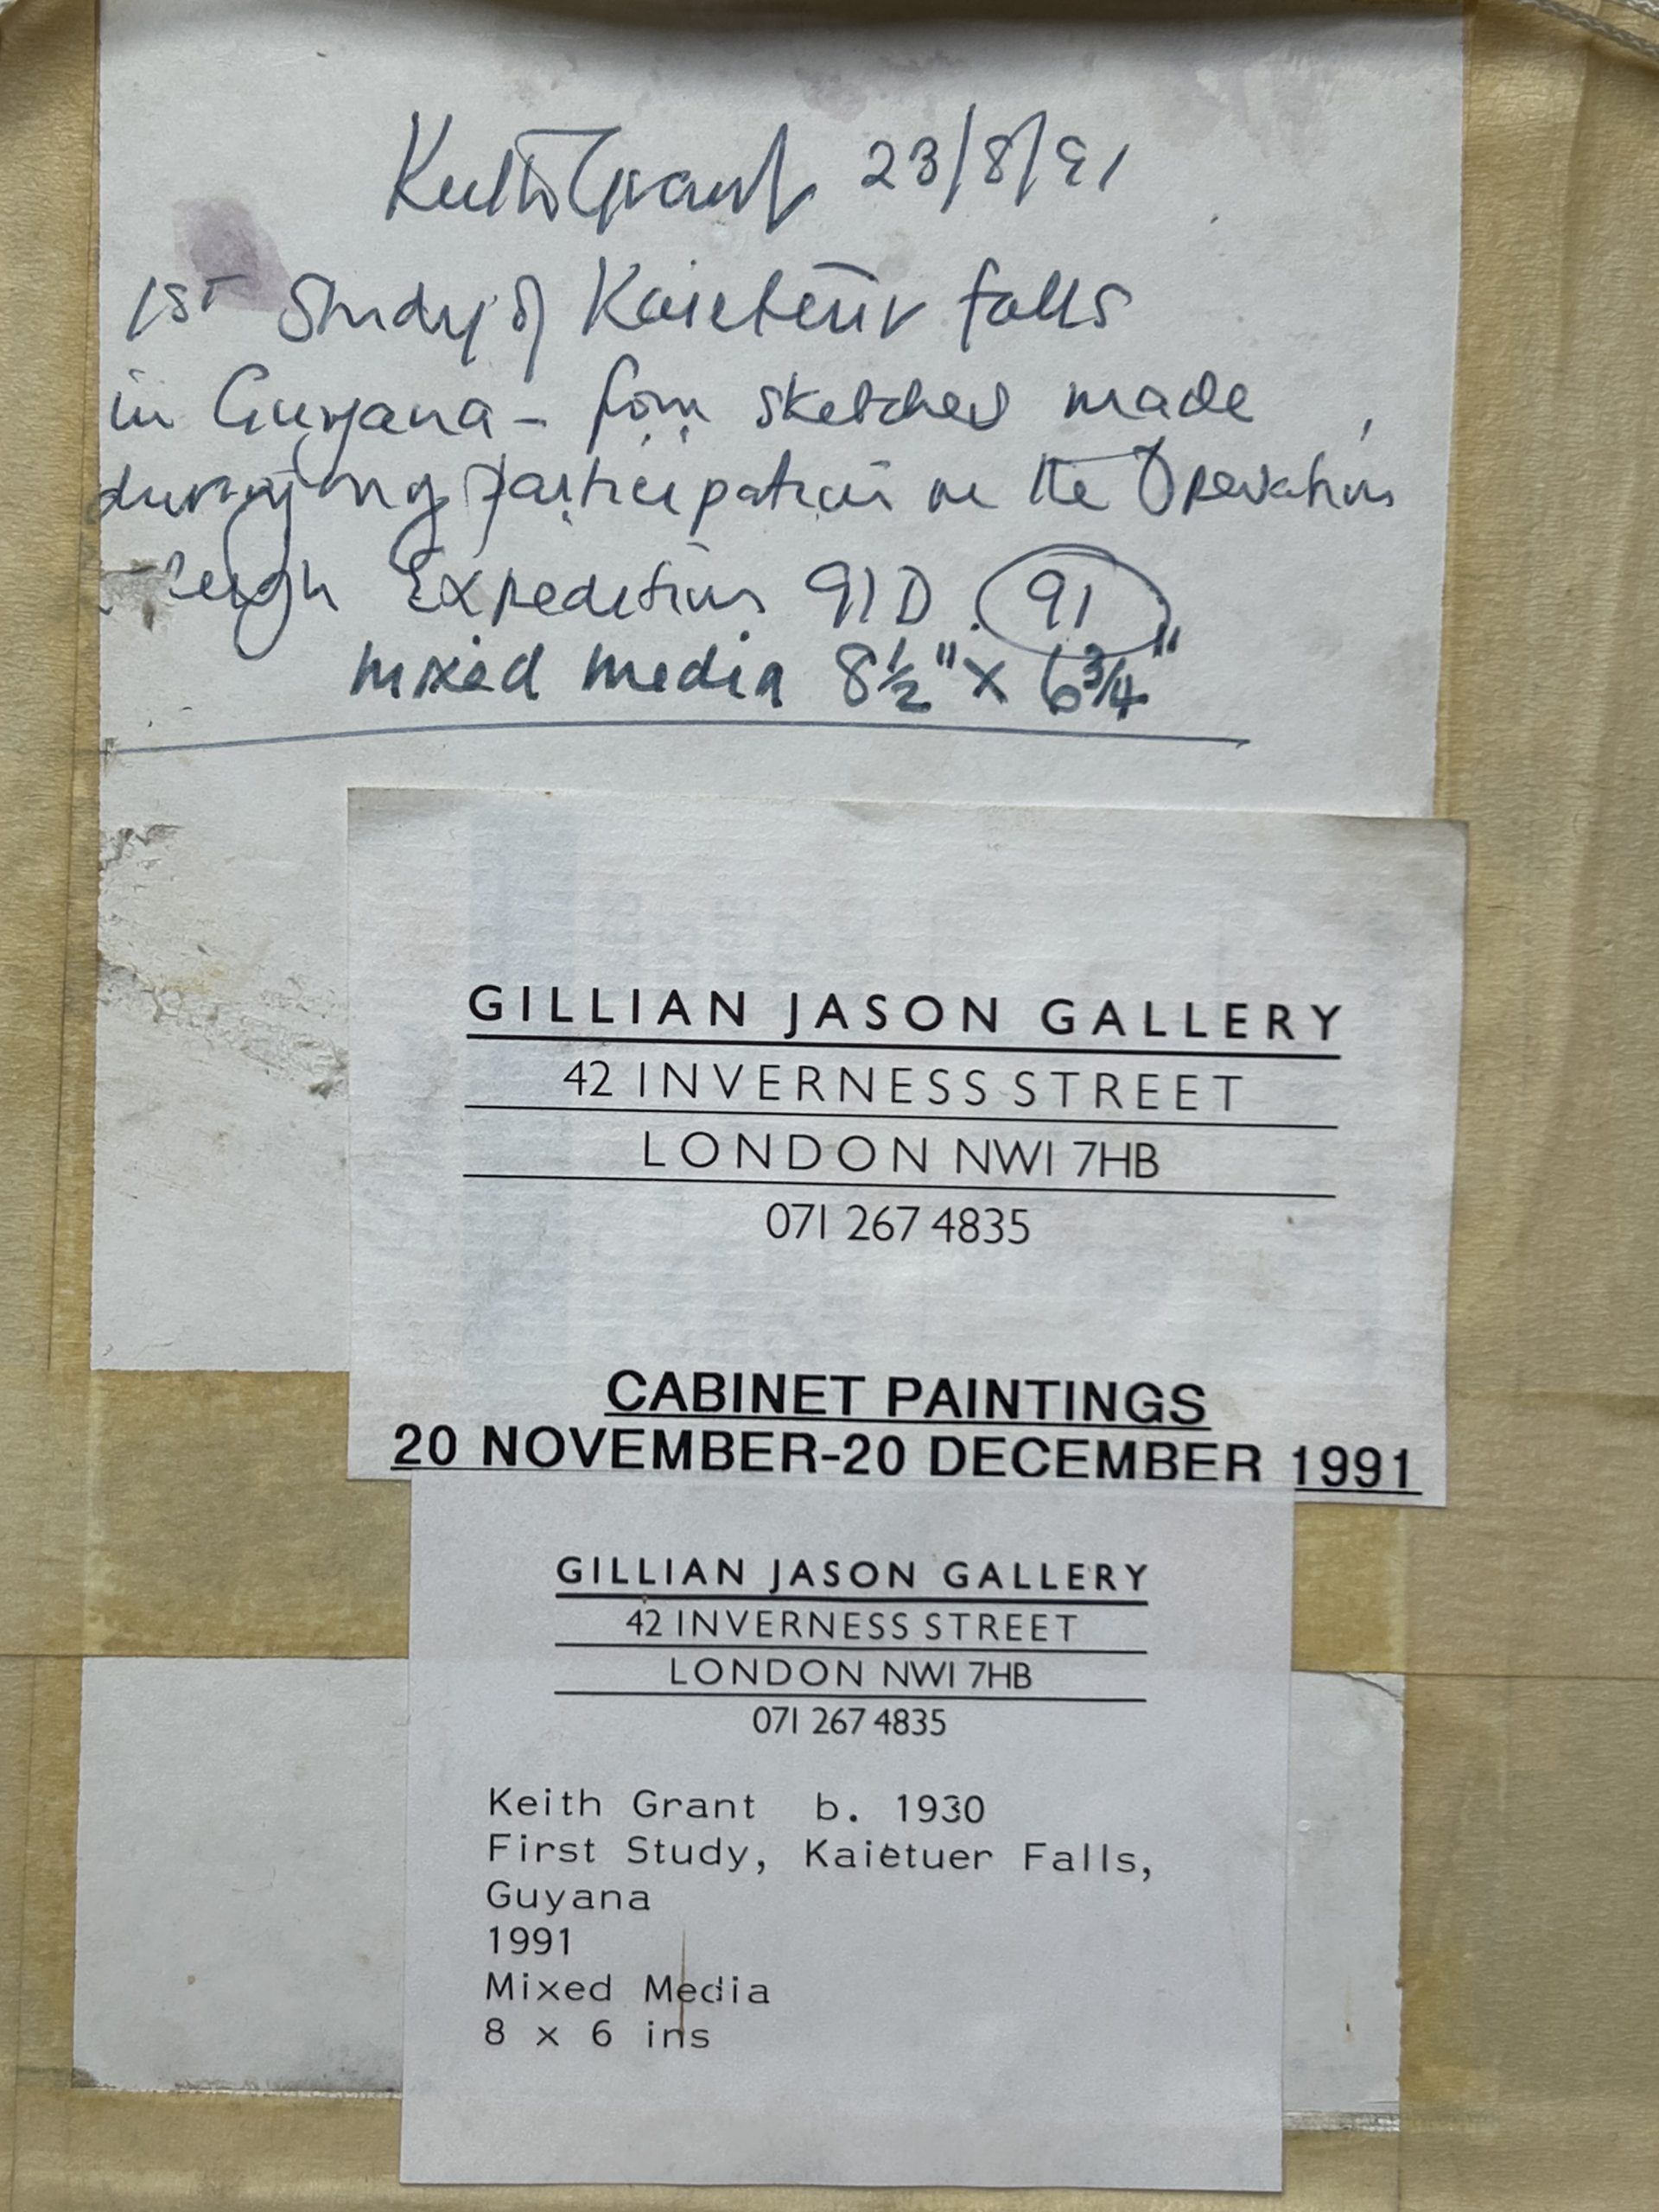 Keith Grant 23/8/91
1ST Study of Kaieteur falls
in Guyana - from sketches made
during my participation in the Operation
leigh Expedition 91D. 91
mixed media 8½" x 6¾"
GILLIAN JASON GALLERY
42 INVERNESS STREET
LONDON NW1 7HB
071 267 4835
CABINET PAINTINGS
20 NOVEMBER-20 DECEMBER 1991
GILLIAN JASON GALLERY
42 INVERNESS STREET
LONDON NW1 7HB
071 267 4835
Keith Grant b. 1930
First Study, Kaietuer Falls,
Guyana
1991
Mixed Media
8 x 6 ins